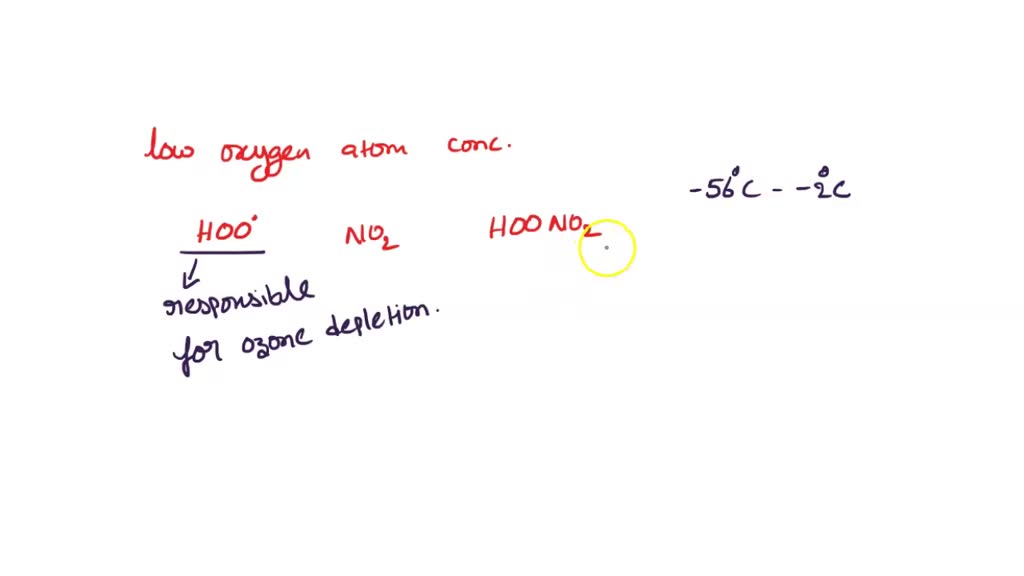 low oxygen atom conc.
-56°C - -2°C
HOO• NO₂ HOONO₂
responsible
for ozone depletion.